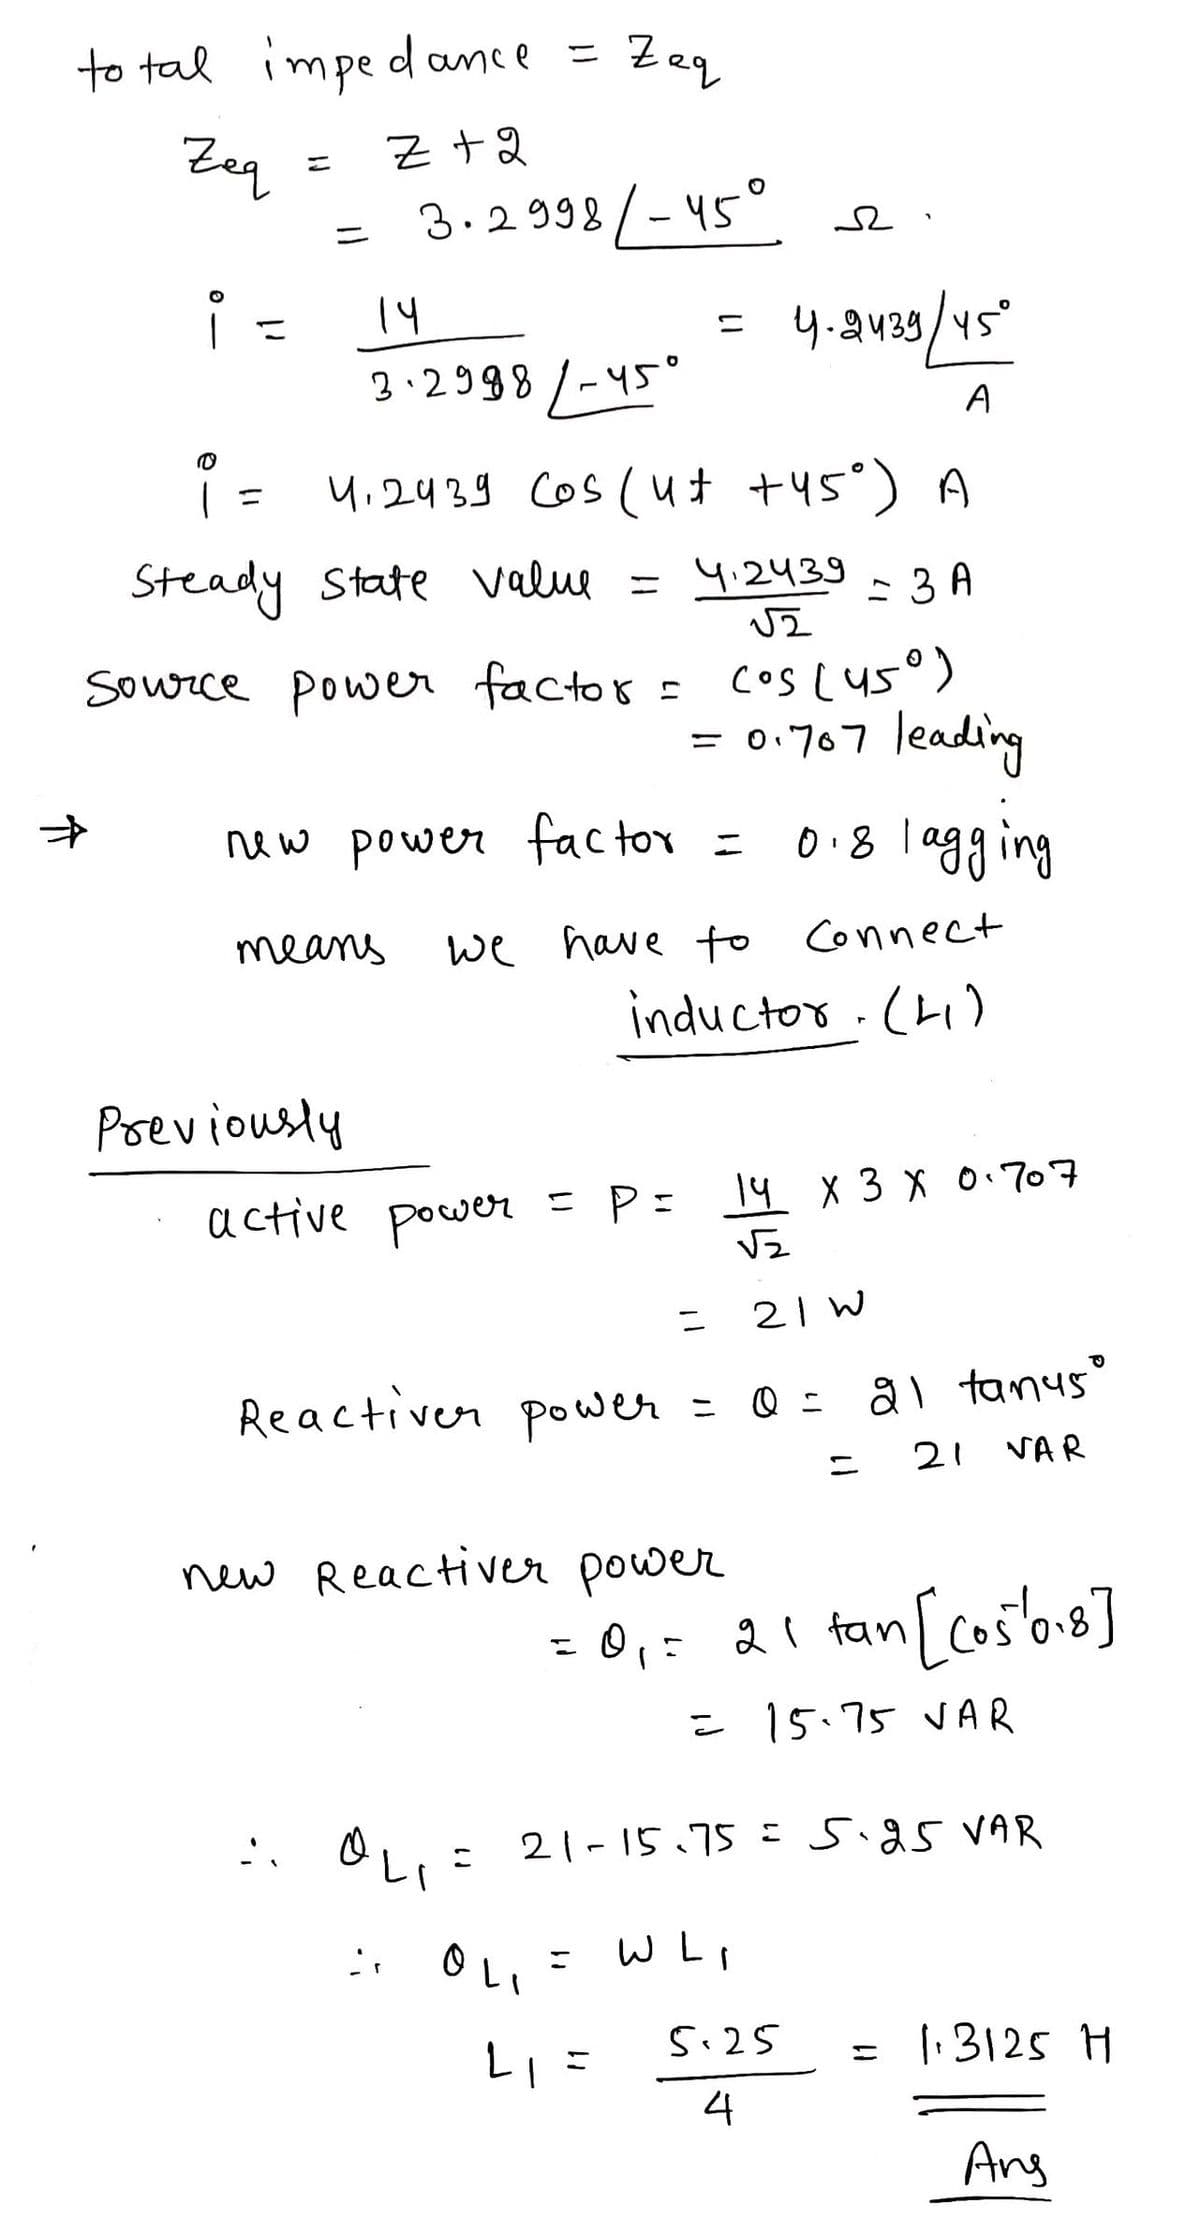 total impedance = Zeq
Zeq = Z + 2
= 3.2998 /-45° Ω.
i = 14 / 3.2998 /-45° = 4.2439 /45° A
i = 4.2439 cos(4t + 45°) A
Steady state value = 4.2439 / √2 = 3 A
Source power factor = cos(45°)
= 0.707 leading
⇒ new power factor = 0.8 lagging
means we have to connect
inductor. (L1)
Previously
active power = P = 14/√2 x 3 x 0.707
= 21 W
Reactiver power = Q = 21 tan45°
= 21 VAR
new Reactiver power
= Q1 = 21 tan[cos⁻¹0.8]
= 15.75 VAR
∴ QL1 = 21-15.75 = 5.25 VAR
∴ QL1 = WL1
L1 = 5.25 / 4 = 1.3125 H
Ans